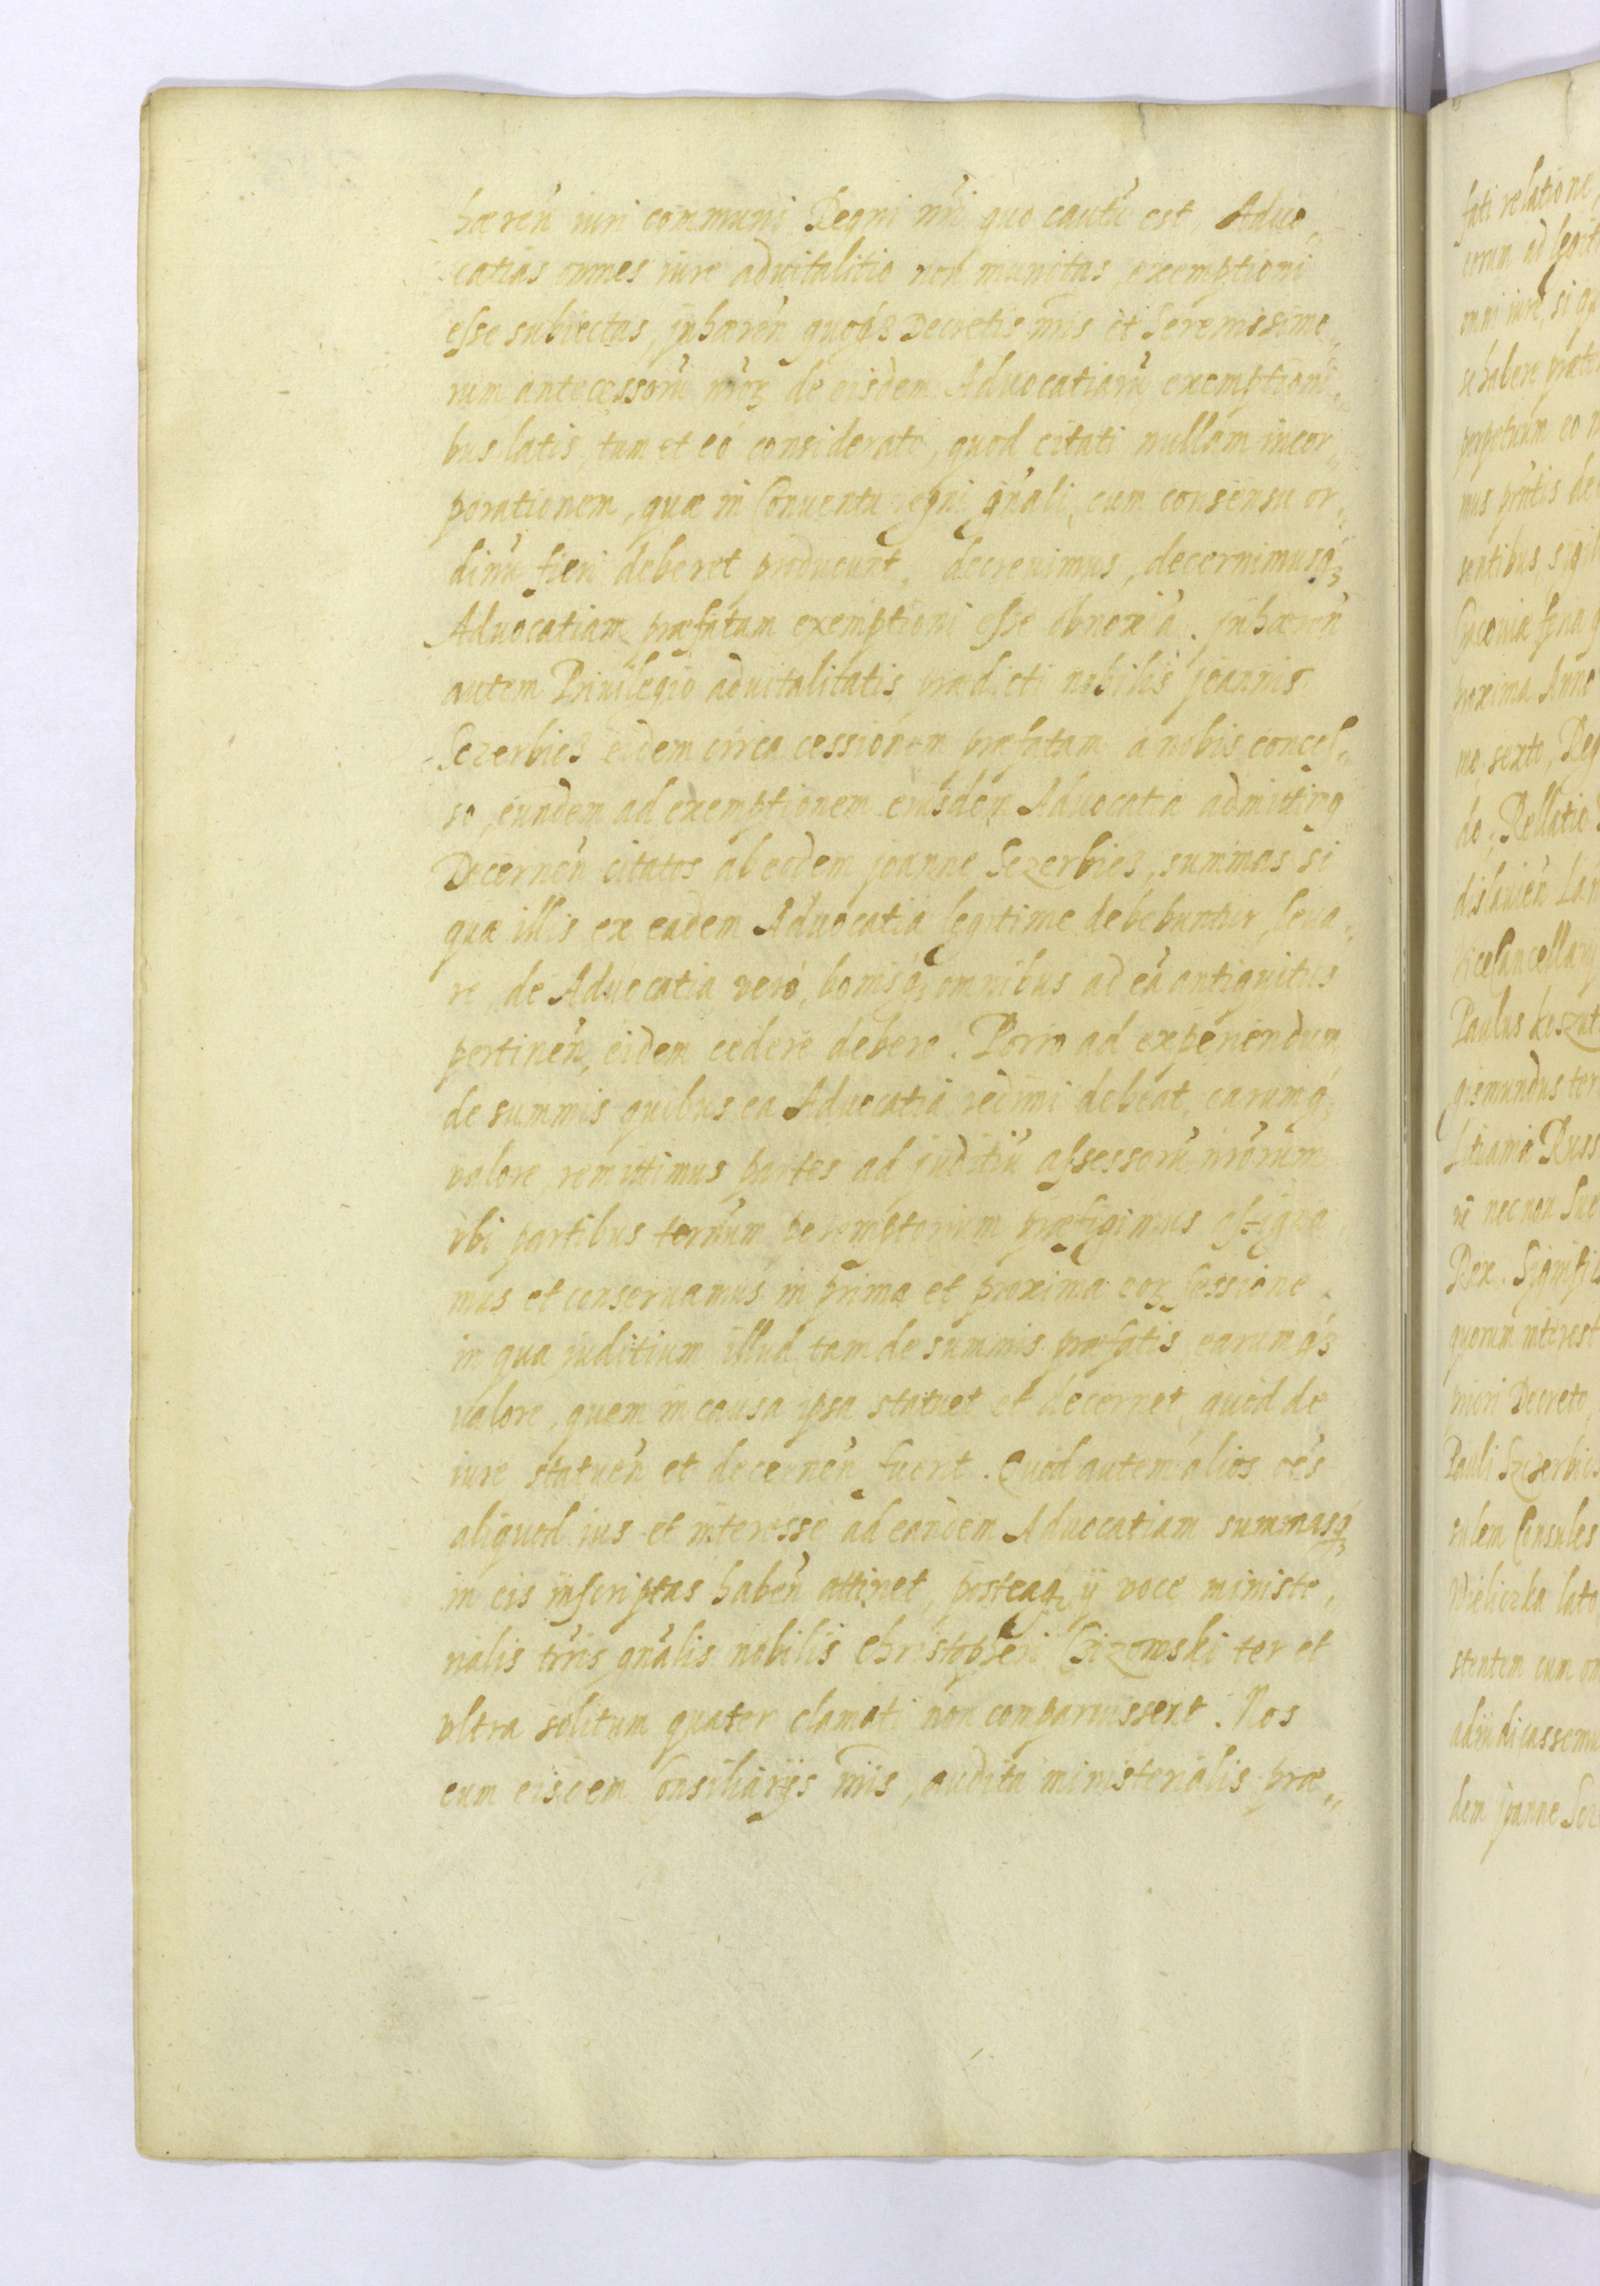 hæren̄ iuri communi Regni nr̄i quo cautū est, Aduo„
catias omnes iure aduitalitio non munitas exemptioni
esse subiectas, inhæren̄ quoq₃ Decretis nr̄is et Serenissimo„
rum antecessorū nr̄oꝝ de eisdem Aduocatiarū exemptioni„
bus latis, tum et eo considerato, quod citati nullam incor„
porationem, quæ in Conuentu regni gn̄ali, cum consensu or„
dinū fieri deberet producunt, decreuimus, decernimusq₃
Aduocatiam præfatam exemptioni esse obnoxiā. inhæren̄
autem Priuilegio aduitalitatis prædicti nobilis joannis
Sczerbicz eidem circa cessionem præfatam a nobis conces„
so, eundem ad exemptionem eiusdem Aduocatiæ admittimꝰ
Decernen̄ citatos ab eodem joanne Sczerbicz, summas si
quæ illis ex eadem Aduocatia legitime debebuntur, leua„
re, de Aduocatia vero, bonisq₃ omnibus ad eā antiquitus
pertinen̄, eidem cedere debere. Porro ad experiendum
de summis quibus ea Aduocatia redimi debeat, earumq₃
valore remittimus partes ad juditiū assessorū nr̄orum
vbi partibus termīnum peremptorium præfigimus assigna
mus et conseruamus in prima et proxima eoꝝ sessione,
in qua juditium illud tam de summis præfatis earumq₃
valore, quam in causa ipsa statuet et decernet quod de
iure statuen̄ et decernen̄ fuerit. Quod autem alios oēs
aliquod ius et interesse ad eandem Aduocatiam summasq₃
in eis inscriptas haben̄ attinet, posteaq₃ ij voce ministe„
rialis trr̄is gn̄alis nobilis Christopheri Czizowski ter et
vltra solitum quater clamati non comparuissent. Nos
cum eisdem Consiliarijs nr̄is, audita ministerialis præ„
fati relatione,
eorum ad
omni iure, si
se habere
perpetuum
mus
sentibus, sigil
Cracoviæ
proxima Anno
mo sexto, Reg
do, Rellatio
Vicecancellarij
Paulus
gismundus
Rex. Signifi
quorum interest
priori Decreto,
Pauli Sczerbicz
Consules
Wieliczka
stentem cum
adiudicassemus
dem joanne Scz